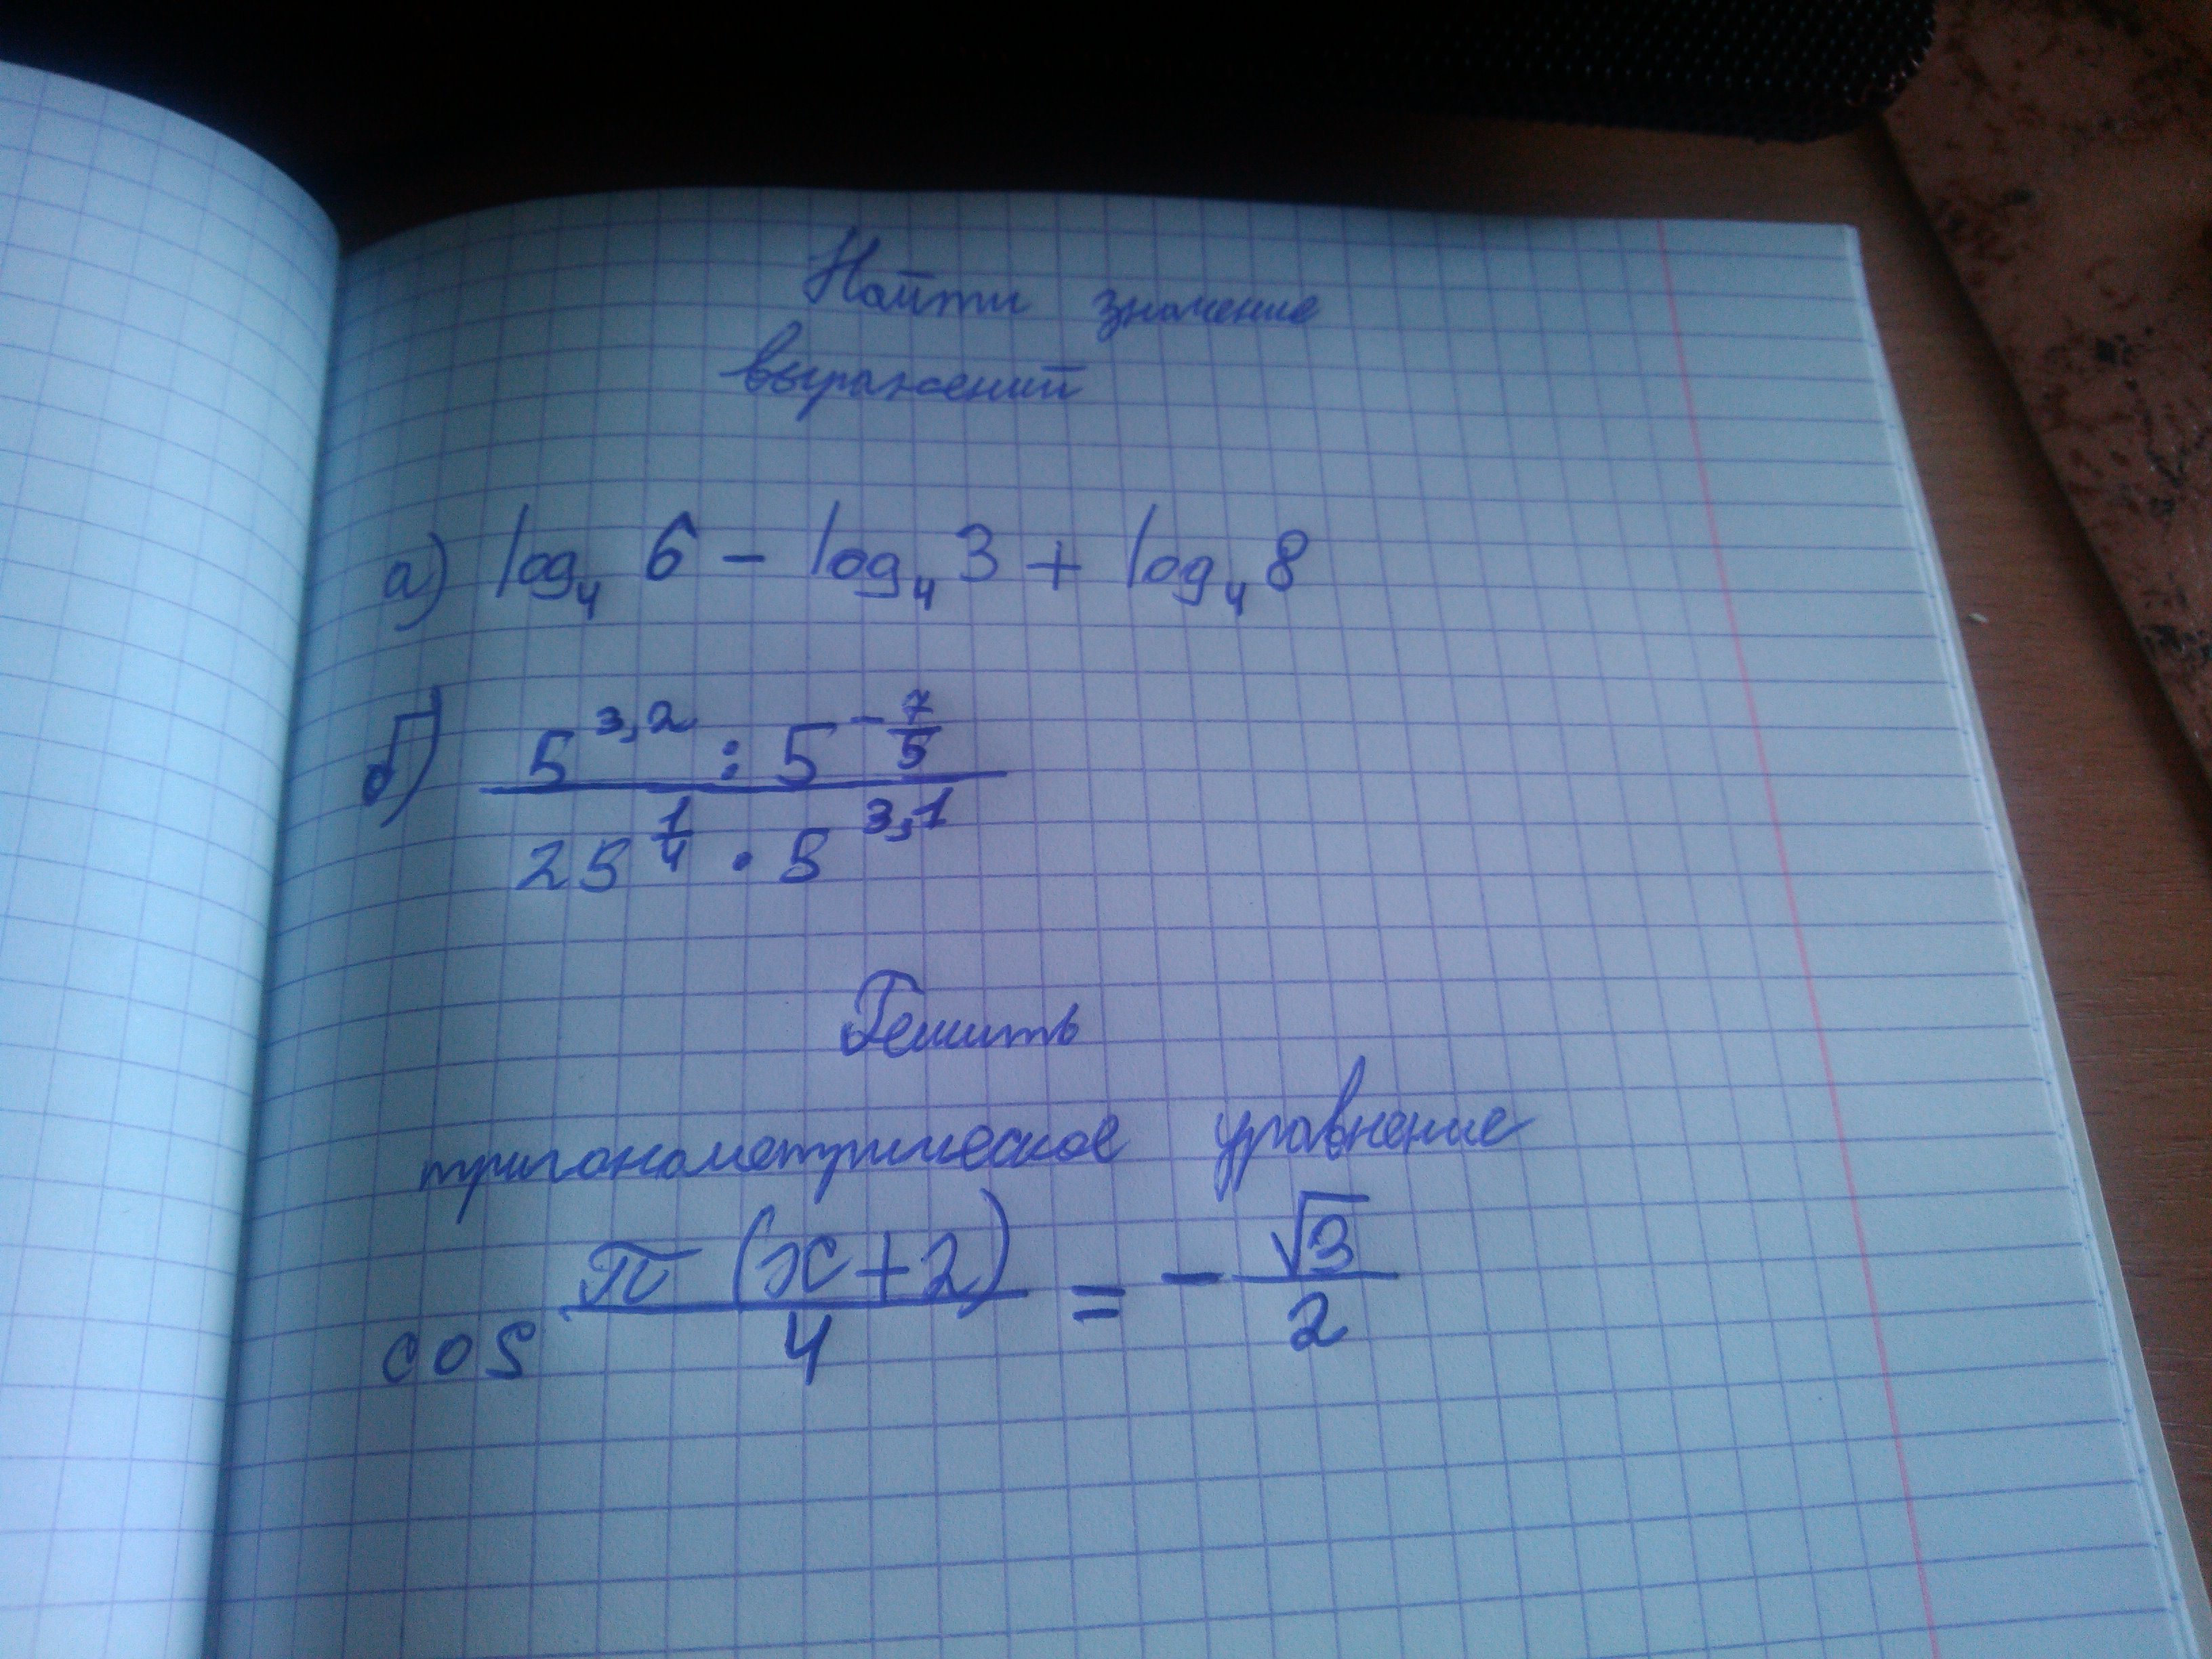 Найти значение
выражений
а) log₄ 6 − log₄ 3 + log₄ 8
б) \frac{5^{3,2} : 5^{-\frac{7}{5}}}{25^{\frac{1}{4}} · 5^{3,1}}
Решить
тригонометрическое уравнение
cos \frac{π (x+2)}{4} = − \frac{√3}{2}